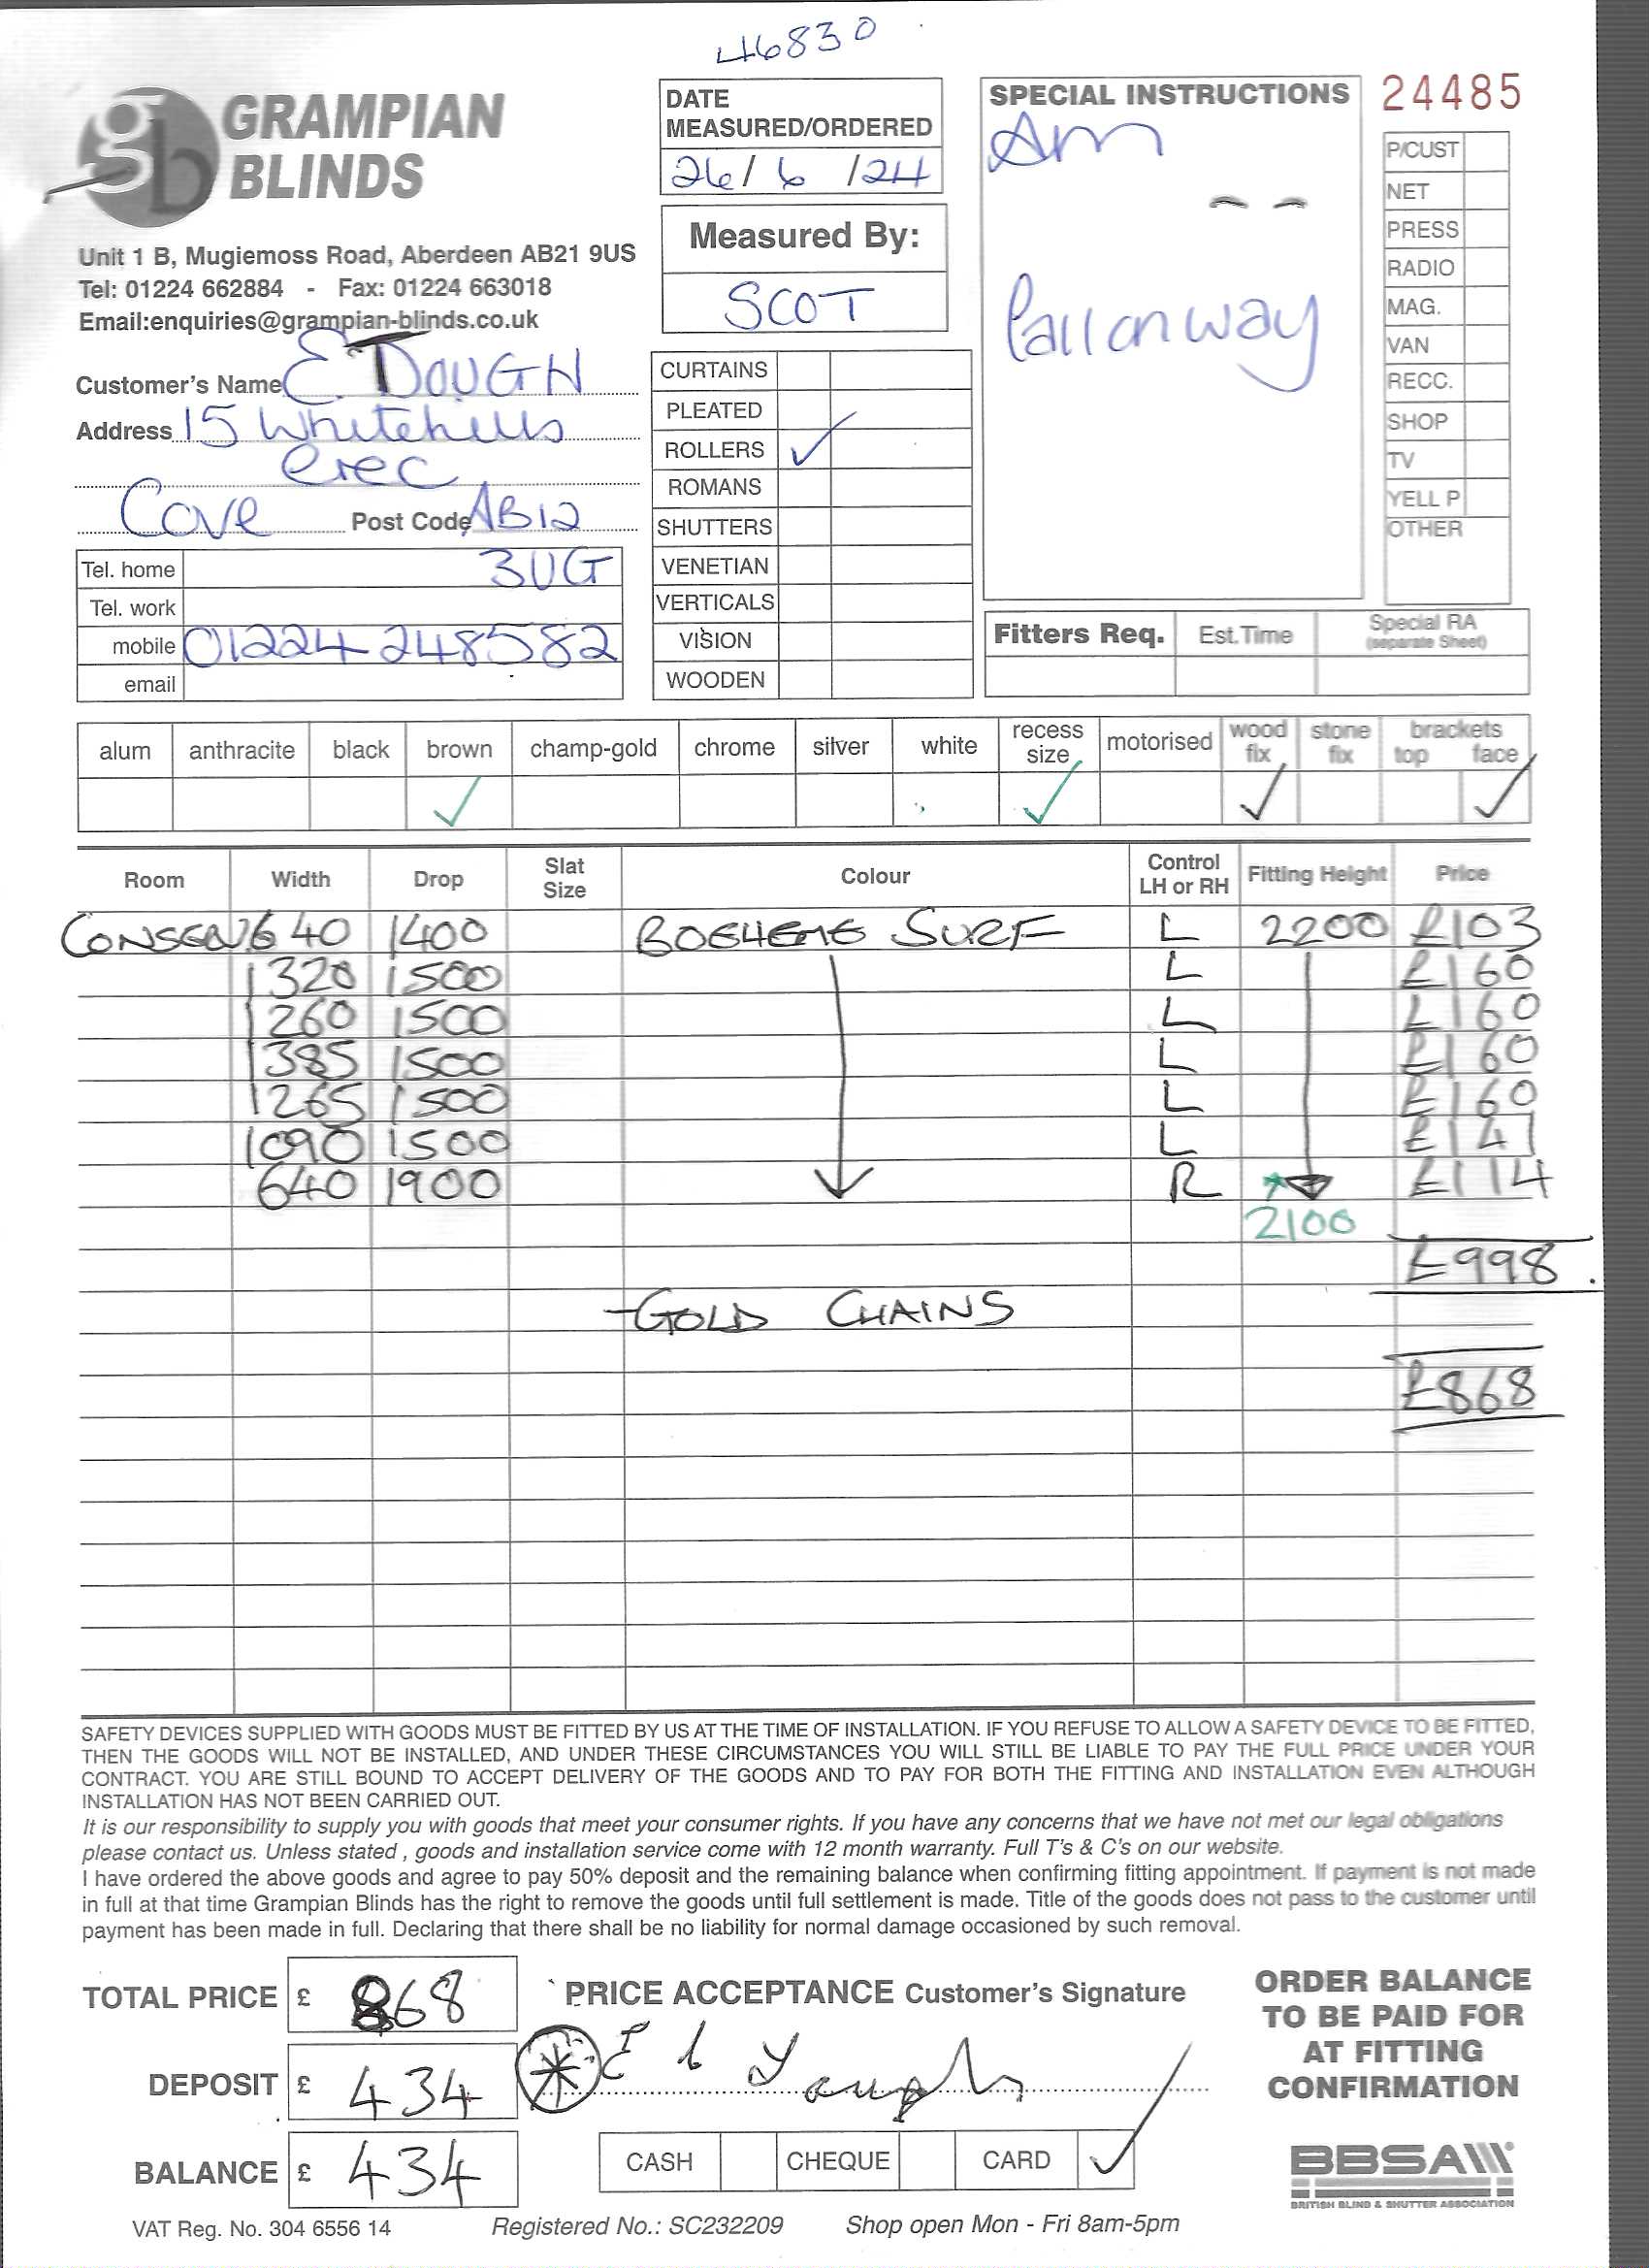 46830
GRAMPIAN
BLINDS
Unit 1 B, Mugiemoss Road, Aberdeen AB21 9US
Tel: 01224 662884 - Fax: 01224 663018
Email:enquiries@grampian-blinds.co.uk
Customer's Name E. DOUGH
Address 15 Whitehills
Cresc
Cove Post Code AB12
3UG
Tel. home
Tel. work
mobile 01224 248582
email
DATE
MEASURED/ORDERED
26/ 6 /24
Measured By:
SCOT
CURTAINS
PLEATED
ROLLERS ✓
ROMANS
SHUTTERS
VENETIAN
VERTICALS
VISION
WOODEN
SPECIAL INSTRUCTIONS
Am
Call on way
24485
P/CUST
NET
PRESS
RADIO
MAG.
VAN
RECC.
SHOP
TV
YELL P
OTHER
Fitters Req. Est.Time Special RA
(separate Sheet)
alum anthracite black brown champ-gold chrome silver white recess size motorised wood fix stone fix brackets top face
✓ ✓ ✓ ✓
Room Width Drop Slat Size Colour Control LH or RH Fitting Height Price
640 1400 SURF L 2200 £103
1320 1500 L £160
1260 1500 L £160
1385 1500 L £160
1265 1500 L £160
1090 1500 L £141
640 1900 R £114
2100
£998
-GOLD CHAINS
£868
SAFETY DEVICES SUPPLIED WITH GOODS MUST BE FITTED BY US AT THE TIME OF INSTALLATION. IF YOU REFUSE TO ALLOW A SAFETY DEVICE TO BE FITTED,
THEN THE GOODS WILL NOT BE INSTALLED, AND UNDER THESE CIRCUMSTANCES YOU WILL STILL BE LIABLE TO PAY THE FULL PRICE UNDER YOUR
CONTRACT. YOU ARE STILL BOUND TO ACCEPT DELIVERY OF THE GOODS AND TO PAY FOR BOTH THE FITTING AND INSTALLATION EVEN ALTHOUGH
INSTALLATION HAS NOT BEEN CARRIED OUT.
It is our responsibility to supply you with goods that meet your consumer rights. If you have any concerns that we have not met our legal obligations
please contact us. Unless stated , goods and installation service come with 12 month warranty. Full T's & C's on our website.
I have ordered the above goods and agree to pay 50% deposit and the remaining balance when confirming fitting appointment. If payment is not made
in full at that time Grampian Blinds has the right to remove the goods until full settlement is made. Title of the goods does not pass to the customer until
payment has been made in full. Declaring that there shall be no liability for normal damage occasioned by such removal.
TOTAL PRICE £ 868
DEPOSIT £ 434
BALANCE £ 434
PRICE ACCEPTANCE Customer's Signature
CASH CHEQUE CARD ✓
ORDER BALANCE
TO BE PAID FOR
AT FITTING
CONFIRMATION
BBSA
BRITISH BLIND & SHUTTER ASSOCIATION
VAT Reg. No. 304 6556 14 Registered No.: SC232209 Shop open Mon - Fri 8am-5pm